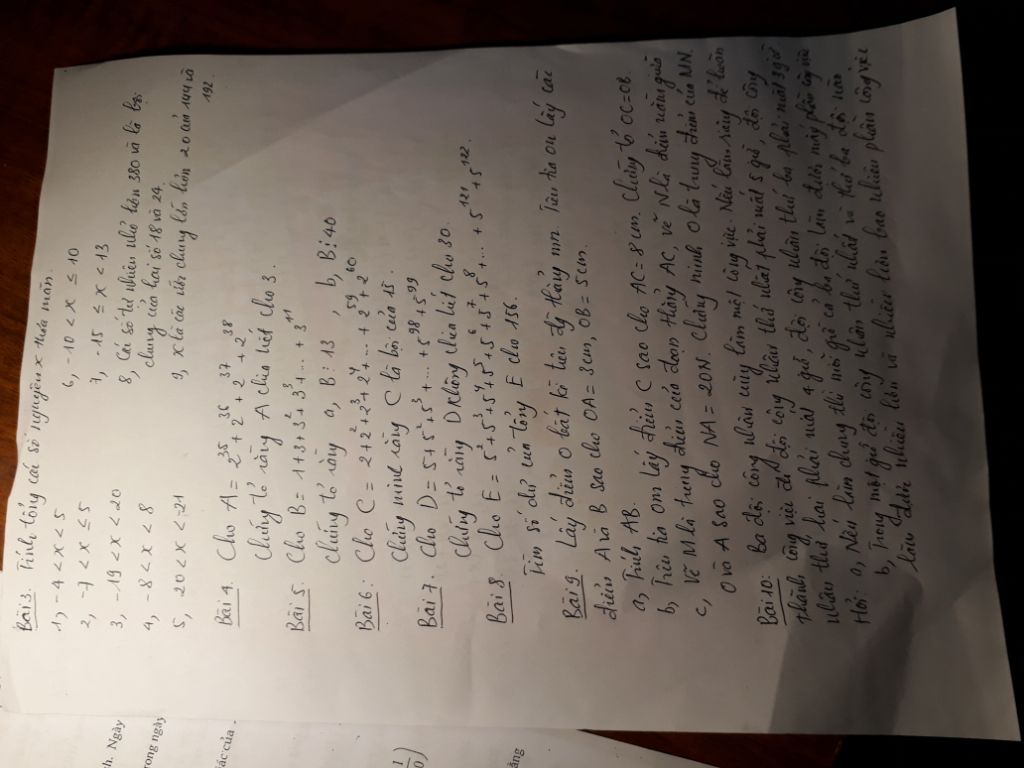 Bài 3. Tính tổng các số nguyên x thỏa mãn.
1, -4 < x < 5
2, -7 < x ≤ 5
3, -19 < x < 20
4, -8 < x < 8
5, 20 < x < 21
6, -10 < x ≤ 10
7, -15 ≤ x < 13
8, Các số tự nhiên nhỏ hơn 380 và là bội
chung của hai số 18 và 24.
9, x là các ước chung lớn hơn 20 của 144 và
192.
Bài 4. Cho A = 2^35 + 2^36 + 2^37 + 2^38
Chứng tỏ rằng A chia hết cho 3.
Bài 5. Cho B = 1 + 3 + 3^2 + 3^3 + ... + 3^11
Chứng tỏ rằng a, B ⋮ 13 , b, B ⋮ 40
Bài 6: Cho C = 2 + 2^2 + 2^3 + 2^4 + ... + 2^59 + 2^60
Chứng minh rằng C là bội của 15.
Bài 7. Cho D = 5 + 5^2 + 5^3 + ... + 5^98 + 5^99
Chứng tỏ rằng D không chia hết cho 30.
Bài 8 Cho E = 5^2 + 5^3 + 5^4 + 5^5 + 5^6 + 5^7 + 5^8 + ... + 5^121 + 5^122.
Tìm số dư của tổng E cho 156.
Bài 9. Lấy điểm O bất kì trên đg thẳng mn. Trên tia On lấy các
điểm A và B sao cho OA = 3cm, OB = 5cm.
a, Tính AB.
b, Trên tia Om lấy điểm C sao cho AC = 8 cm. Chứng tỏ OC = OB
c, Vẽ M là trung điểm của đoạn thẳng AC, vẽ N là điểm nằm giữa
O và A sao cho NA = 2ON. Chứng minh O là trung điểm của MN.
Bài 10: Ba đội công nhân cùng làm một công việc. Nếu làm riêng để hoàn
thành công việc đó đội công nhân thứ nhất phải mất 5 giờ, đội công
nhân thứ hai phải mất 4 giờ, đội công nhân thứ ba phải mất 3 giờ
Hỏi: a, Nếu làm chung thì mỗi giờ cả ba đội làm được mấy phần công việc
b, Trong một giờ đội công nhân thứ nhất và thứ ba đội nào
làm được nhiều hơn và nhiều hơn bao nhiêu phần công việc